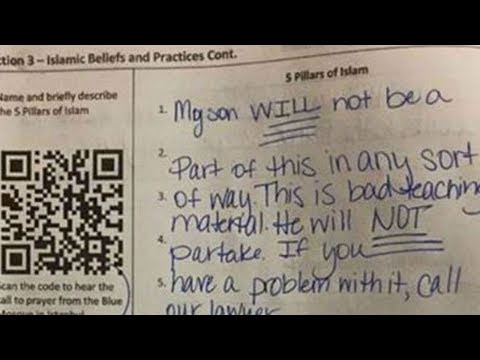 ction 3 – Islamic Beliefs and Practices Cont.
Name and briefly describe
the 5 Pillars of Islam
Scan the code to hear the
call to prayer from the Blue
Mosque in Istanbul
5 Pillars of Islam
1. My son WILL not be a
2.
Part of this in any sort
3. of way. This is bad teaching
material. He will NOT
4.
partake. If you
5. have a problem with it, call
our lawyer